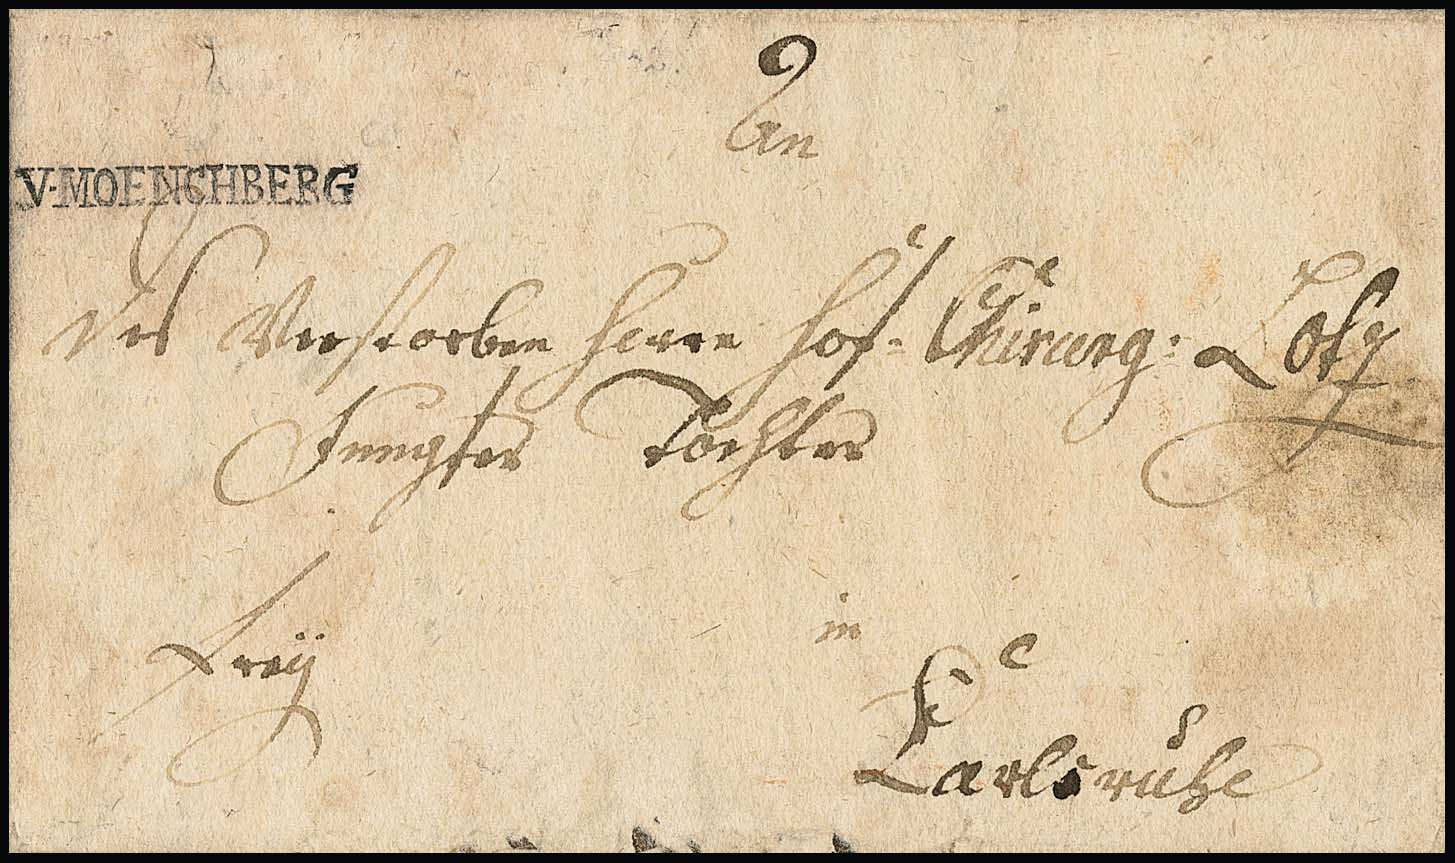 An
V·MOENCHBERG
Des Verstorben Herrn Hof= Chirurg: Lotz
Jungfer Tochter
in
Frey
Carlsruhe